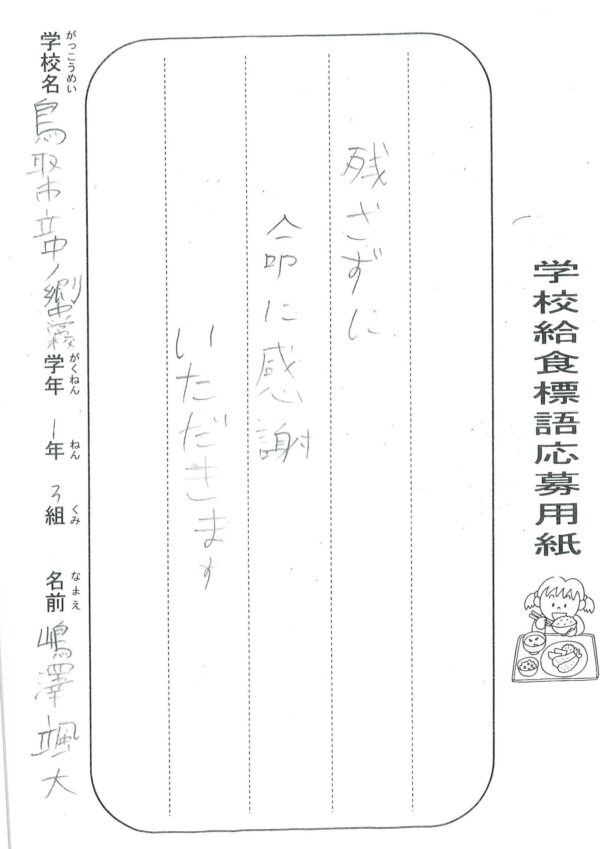 学校給食標語応募用紙
残さずに
命に感謝
いただきます
学校名 鳥取市立中ノ郷中学校 学年 1年 3組 名前 嶋澤颯大
がっこうめい がくねん ねん くみ なまえ